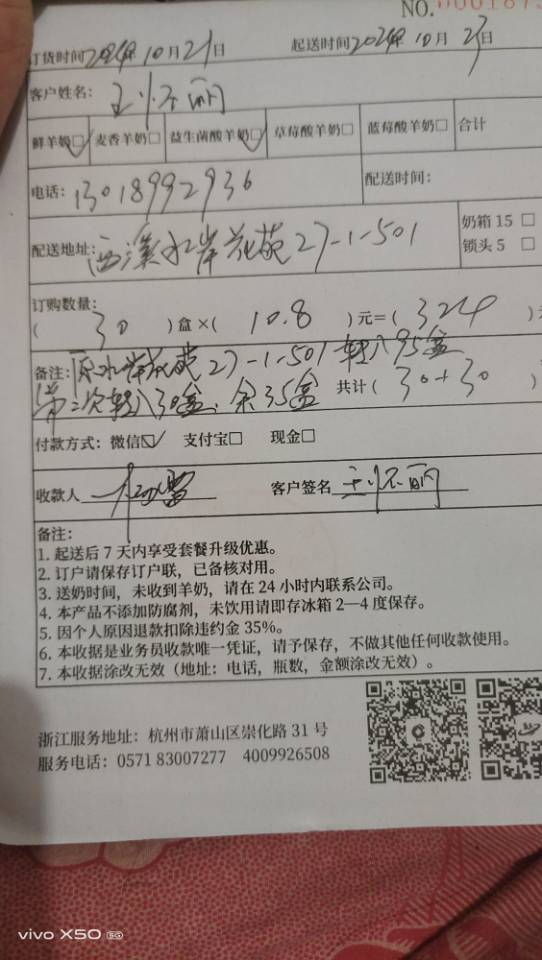 NO.
订货时间2024年10月21日 起送时间2024年10月23日
客户姓名:王怀丽
鲜羊奶☑ 麦香羊奶□ 益生菌酸羊奶☑ 草莓酸羊奶□ 蓝莓酸羊奶□ 合计
电话:13018992936 配送时间:
配送地址:西溪水岸花苑27-1-501 奶箱15 □
锁头5 □
订购数量:
( 30 )盒×( 10.8 )元=( 324 )
备注:原水岸花苑27-1-501转入95盒
第二次转入30盒、余35盒 共计( 30+30 )
付款方式:微信☑ 支付宝□ 现金□
收款人 客户签名 王怀丽
备注:
1. 起送后 7 天内享受套餐升级优惠。
2. 订户请保存订户联,已备核对用。
3. 送奶时间,未收到羊奶,请在 24 小时内联系公司。
4. 本产品不添加防腐剂,未饮用请即存冰箱 2—4 度保存。
5. 因个人原因退款扣除违约金 35%。
6. 本收据是业务员收款唯一凭证,请予保存,不做其他任何收款使用。
7. 本收据涂改无效(地址:电话,瓶数,金额涂改无效)。
浙江服务地址:杭州市萧山区崇化路 31 号
服务电话:0571 83007277 4009926508
vivo X50 5G